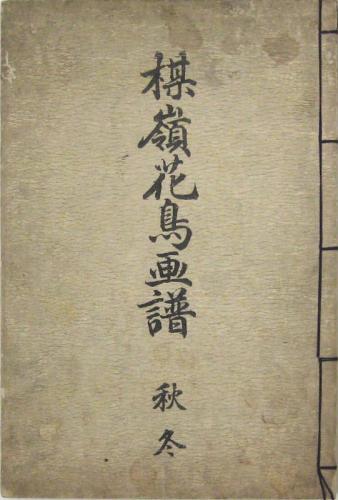 楳嶺花鳥画譜
秋冬